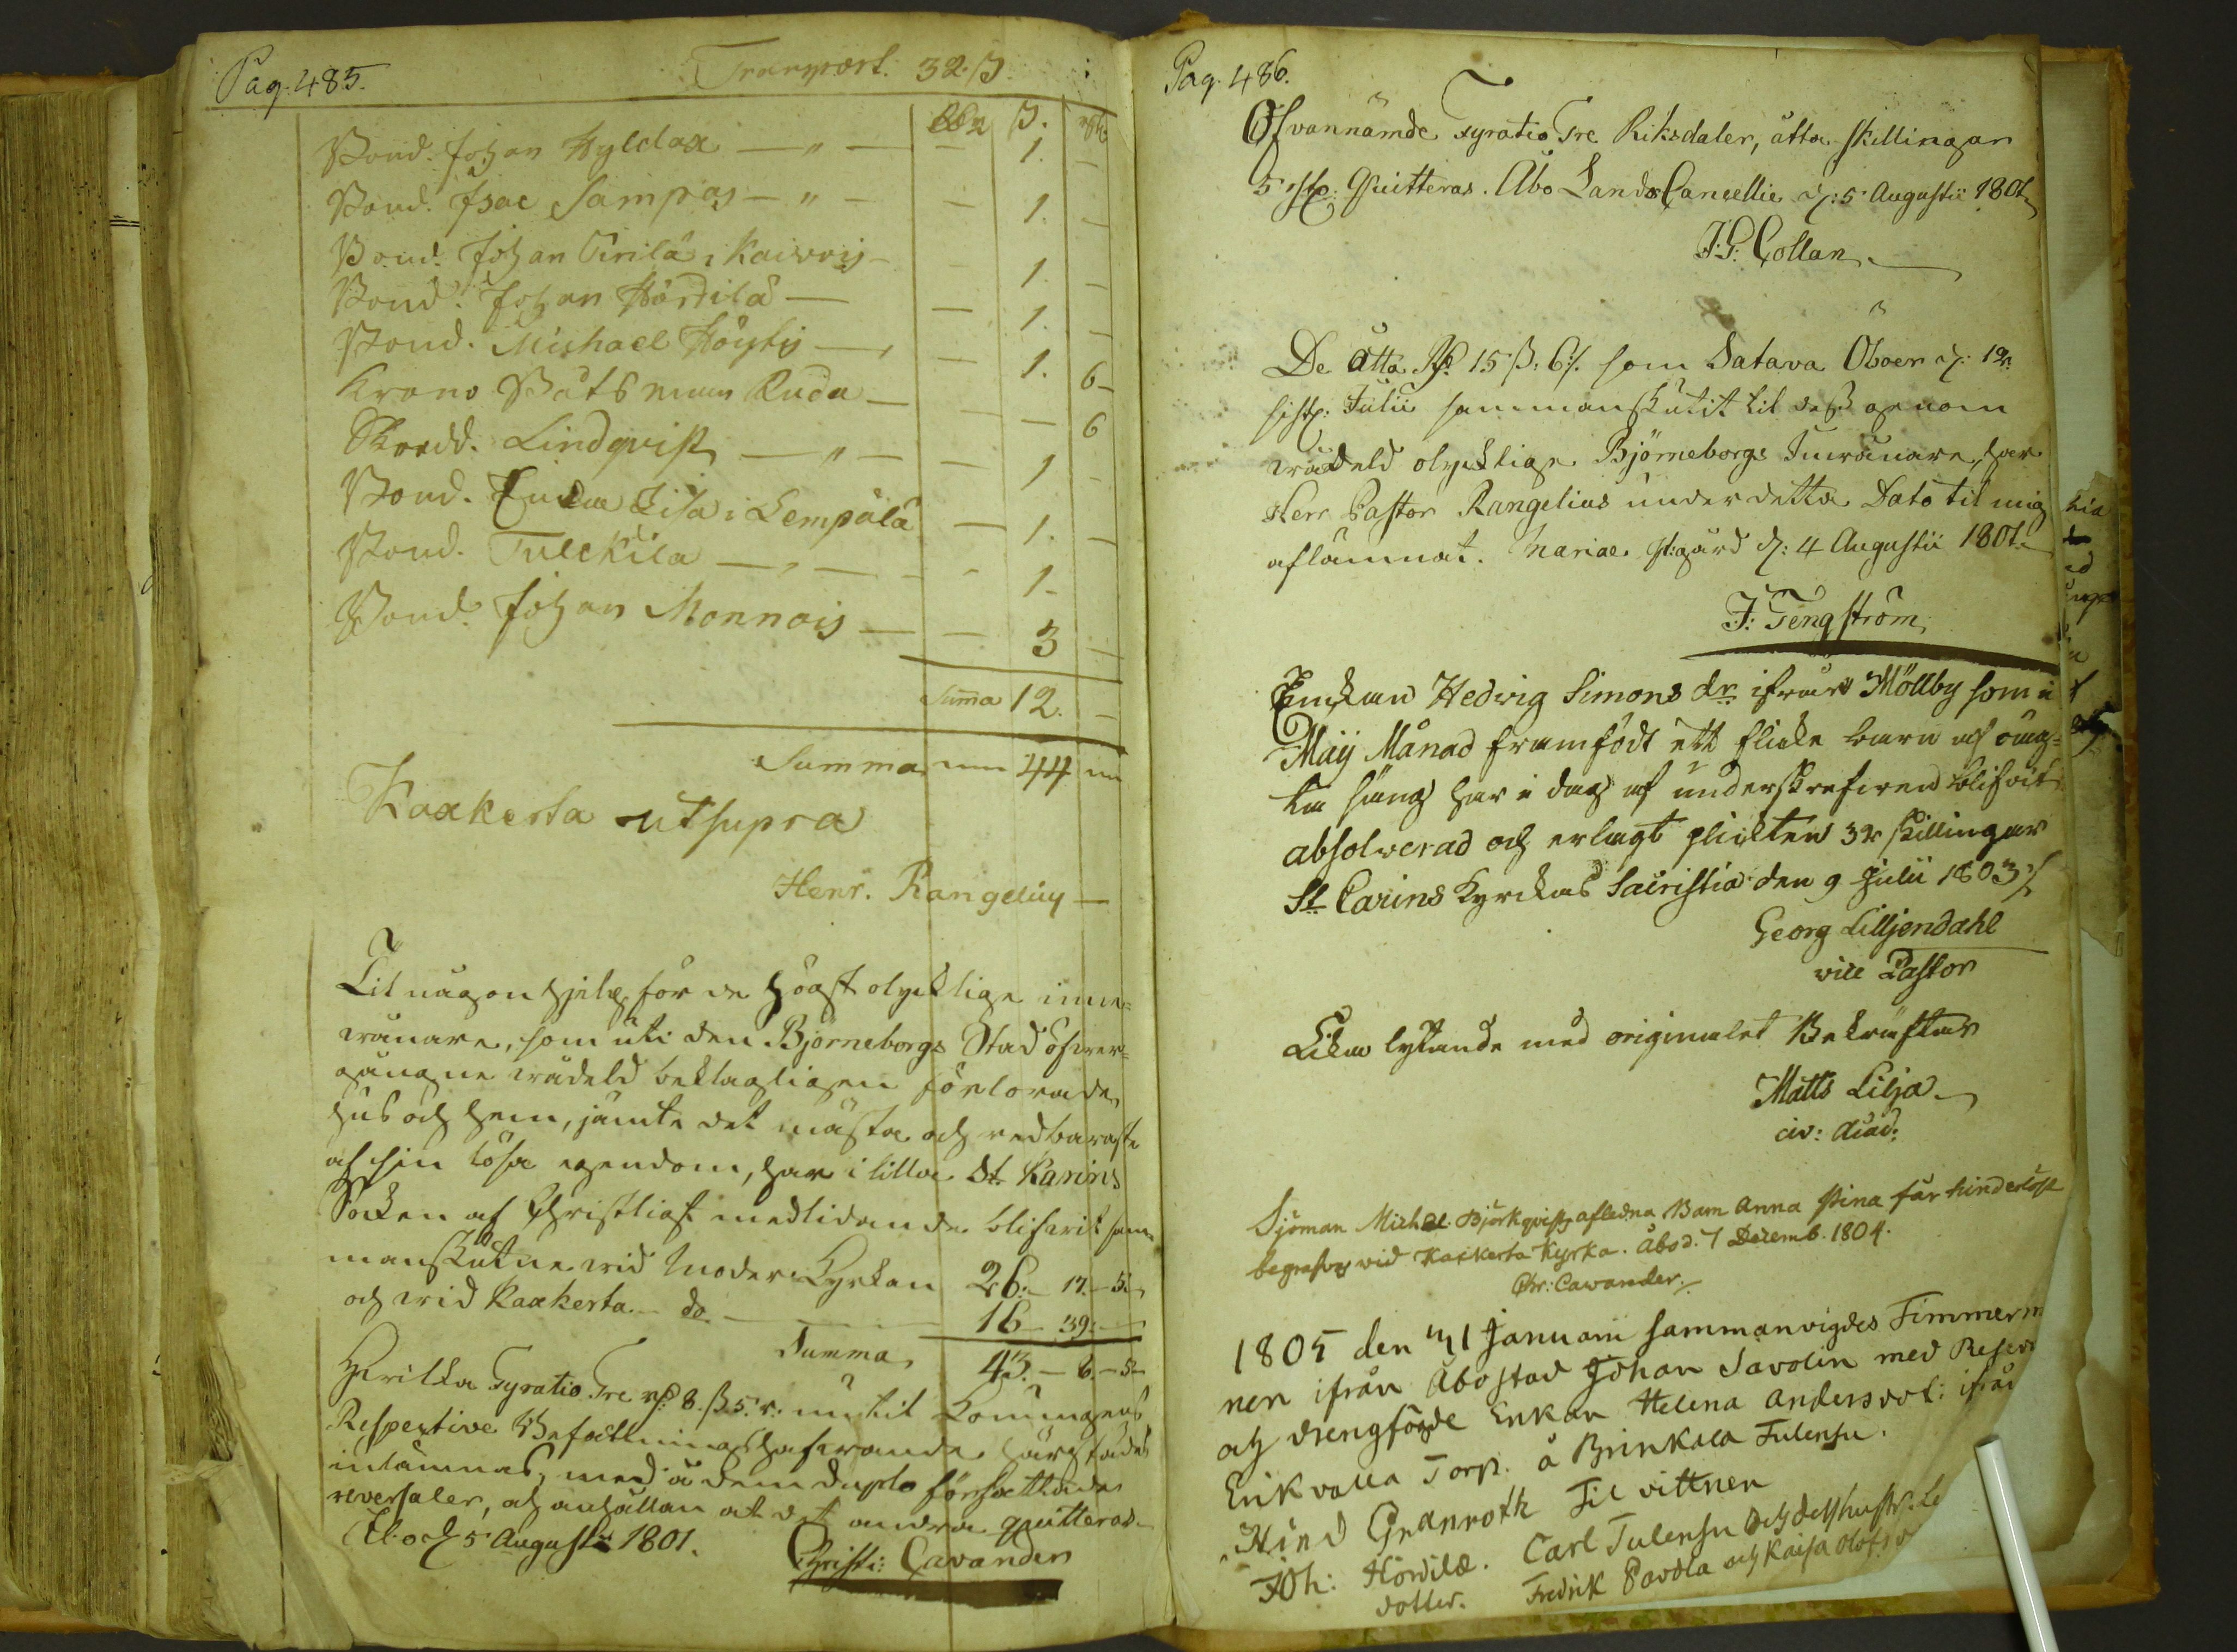 Pag. 485.
Transport. 32. ß
ß.
Bond. Johan Hyldax — " — — 1. —
Bond. Isac Sampas — " — — 1. —
Bond. Johan Pirilä i Kaisvois — — 1. —
Bond. Johan Hördilä — — 1. —
Bond. Michael Höysti — — 1. 6
Krono Båtsman Ruda — — — 6
Skredd. Lindqvist — " — — 1 —
Bond. i Lempälä — 1. —
Bond. Tulckila — " — — 1. —
Bond. Johan Monnois — — 3 —
Summa 12. —
Summa 44
Kaakerta ut supra
Henr. Rangelius
Til någon hjelp för de högst olycklige inne-
wånare, som uti den Björneborgs Stad öfwer-
gångne wådeld beklageligen förlorade
hus och hem, jämte det mästa och redbaraste
af sin lösa egendom, har i lilla St. Karins
Socken af Christligt medlidande blifwit sam-
manskutne wid Moder Kyrkan 26: – 17. – 5.
och wid Kaxkerta do. — 16 – 39: —
Summa 43. – 8. – 5
Hwilka Fyratio Tre rd. 8. ß 5. r. nu til Konungens
Respective Befallningshafwande härstädes
inlämnas, med å dem duplo författade
reversaler, och anhållan at det andra quitteras.
Åbo d. 5 Augustii 1801.
Christ: Cavander
Pag. 486.
Ofvannämde Fyratio Tre Riksdaler, åtta skillingar
5 rst. Quitteras. Åbo Lands Cancellie d: 5 Augustii 1801
J. G: Collan
De åtta Rd. 15 ß: 6 som Satava Öboer d: 12
sistl. Julii sammanskutit til desse genom
wådeld olycklige Björneborgs Inwånare, har
Herr Pastor Rangelius under detta Dato til mig
aflämnat. Mariae Pr:gård d: 4 Augustii 1801.
J: Tengström
Enckan Hedvig Simons dr ifrån Möllby som i
Maij Månad framfödt ett flicke barn af oäg-
ta säng har i dag af underskrefwen blifvit
absolverad och erlagt plickten 32 skillingar
St Carins Kyrckas Sacristia den 9 Julii 1803
Georg Lilljendahl
vice Pastor
Lika lytande med originalet Bekräftar
Matts Lilja
civ: Acad:
Sjöman Michael Björkqvists afledna Barn Anna Stina får hinderlöst
begrafvas wid Kaxkerta Kyrka. Åbo d. 7 Decemb. 1804.
Chr: Cavander
1805 den 1 Januarii sammanvigdes Timmerm
nen ifrån Åbo stad Johan Savolin med
och drengfögde Enkan Helena Andersdot: ifrån
Erikvalla Torp. å Brinkala
Hind Granroth Til vittnen
Joh: Hördilä. Carl
dotter. Fredrik Pavola och Kaisa Olofs